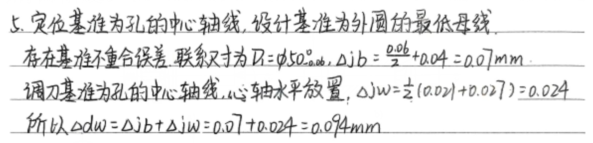 5. 定位基准为孔的中心轴线,设计基准为外圆的最低母线
存在基准不重合误差.联系尺寸为D₁=φ50⁰₋₀.₀₆, Δjb=0.06/2+0.04=0.07mm
调刀基准为孔的中心轴线,心轴水平放置, Δjw=½(0.021+0.027)=0.024
所以Δdw=Δjb+Δjw=0.07+0.024=0.094mm